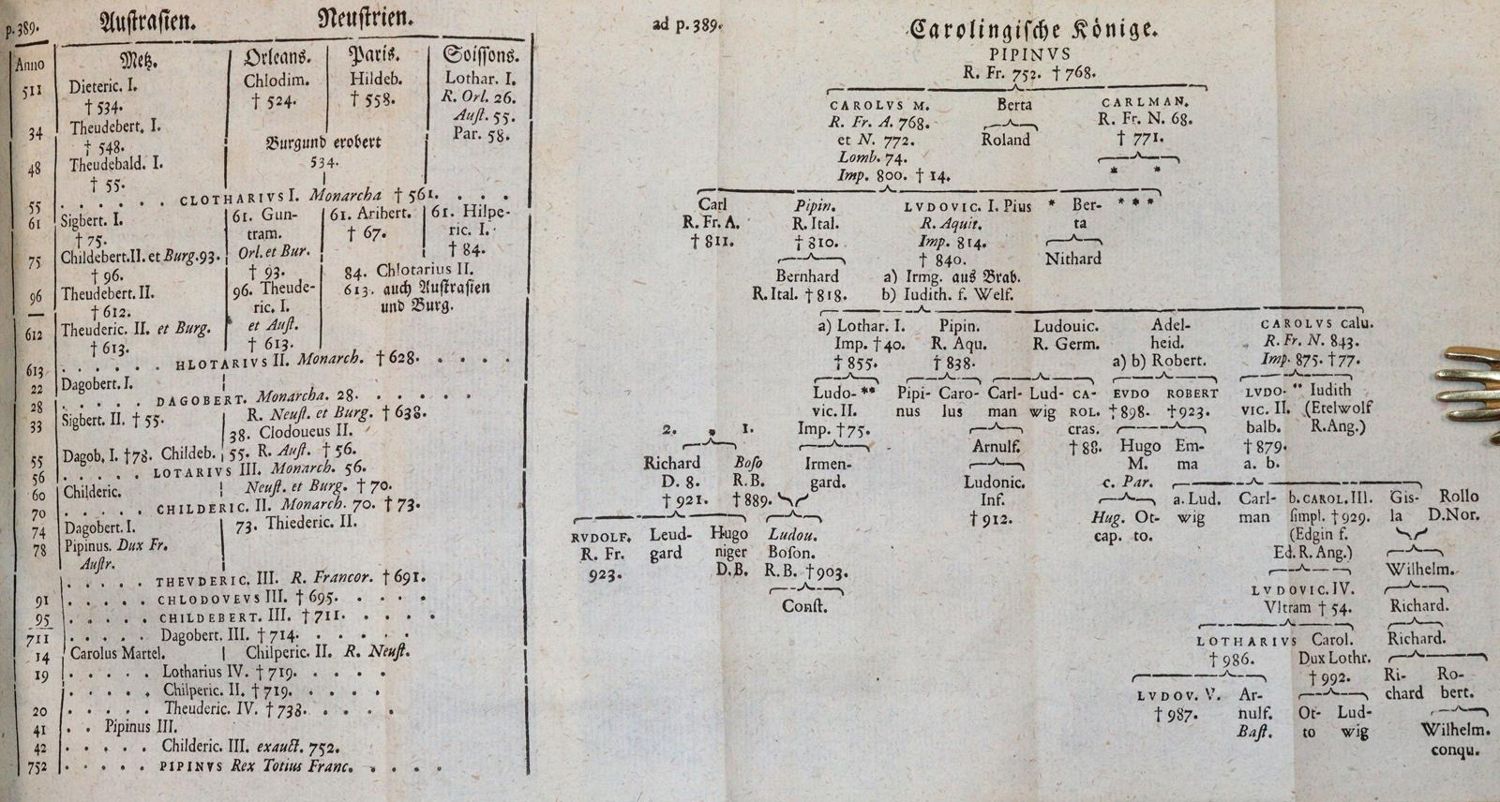 p.389.
Austrasien. Neustrien.
Anno Metz. Orleans. Paris. Soissons.
511 Dieteric. I. Chlodim. Hildeb. Lothar. I.
† 534. † 524. † 558. R. Orl. 26.
Aust. 55.
34 Theudebert. I. Par. 58.
† 548. Burgund erobert
48 Theudebald. I. 534.
† 55.
55 . . . . . . CLOTHARIVS I. Monarcha † 561. . . .
61 Sigbert. I. 61. Gun- 61. Aribert. 61. Hilpe-
† 75. tram. † 67. ric. I.
75 Childebert. II. et Burg. 93. Orl. et Bur. † 84.
† 96. † 93. 84. Chlotarius II.
96 Theudebert. II. 96. Theude- 613. auch Austrasien
† 612. ric. I. und Burg.
612 Theuderic. II. et Burg. et Aust.
† 613. † 613.
613 . . . . . . HLOTARIVS II. Monarch. † 628. . . . .
22 Dagobert. I.
28 . . . . . DAGOBERT. Monarcha. 28. . . . . .
33 Sigbert. II. † 55. R. Neust. et Burg. † 638.
38. Clodoueus II.
55 Dagob. I. † 78. Childeb. 55. R. Aust. † 56.
56 . . . . . LOTARIVS III. Monarch. 56.
60 Childeric. Neust. et Burg. † 70.
70 . . . . . CHILDERIC. II. Monarch. 70. † 73.
74 Dagobert. I. 73. Thiederic. II.
78 Pipinus. Dux Fr.
Austr.
. . . . . THEVDERIC. III. R. Francor. † 691.
91 . . . . . CHLODOVEVS III. † 695. . . . .
95 . . . . . CHILDEBERT. III. † 711. . . . .
711 . . . . . Dagobert. III. † 714. . . . . .
14 Carolus Martel. Chilperic. II. R. Neust.
19 . . . . . Lotharius IV. † 719. . . . .
. . . . . Chilperic. II. † 719. . . . .
20 . . . . . Theuderic. IV. † 738. . . . .
41 . . Pipinus III.
42 . . . . . Childeric. III. exauct. 752.
752 . . . . . PIPINVS Rex Totius Franc. . . . .
ad p. 389.
Carolingische Könige.
PIPINVS
R. Fr. 752. † 768.
CAROLVS M. Berta CARLMAN.
R. Fr. A. 768. Roland R. Fr. N. 68.
et N. 772. † 771.
Lomb. 74. * *
Imp. 800. † 14.
Carl Pipin. LVDOVIC. I. Pius * Ber- * * *
R. Fr. A. R. Ital. R. Aquit. ta
† 811. † 810. Imp. 814.
† 840. Nithard
Bernhard a) Irmg. aus Brab.
R. Ital. † 818. b) Iudith. f. Welf.
a) Lothar. I. Pipin. Ludouic. Adel- CAROLVS calu.
Imp. † 40. R. Aqu. R. Germ. heid. R. Fr. N. 843.
† 855. † 838. a) b) Robert. Imp. 875. † 77.
Ludo- ** Pipi- Caro- Carl- Lud- CA- EVDO ROBERT LVDO- ** Iudith
vic. II. nus lus man wig ROL. † 898. † 923. VIC. II. (Etelwolf
2. 1. Imp. † 75. cras. balb. R. Ang.)
Arnulf. † 88. Hugo Em- † 879.
Richard Boso Irmen- M. ma a. b.
D. 8. R.B. gard. Ludonic. c. Par.
† 921. † 889. Inf. a. Lud. Carl- b. CAROL. III. Gis- Rollo
† 912. Hug. Ot- wig man simpl. † 929. la D.Nor.
RVDOLF. Leud- Hugo Ludou. cap. to. (Edgin f.
R. Fr. gard niger Boson. Ed. R. Ang.)
923. D.B. R.B. † 903. Wilhelm.
Const. LVDOVIC. IV.
Vltram † 54. Richard.
LOTHARIVS Carol. Richard.
† 986. Dux Lothr.
† 992. Ri- Ro-
LVDOV. V. Ar- chard bert.
† 987. nulf. Ot- Lud-
Bast. to wig Wilhelm.
conqu.